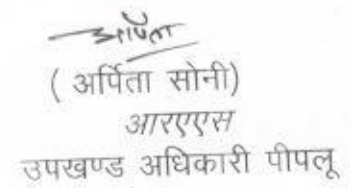 अर्पिता
( अर्पिता सोनी)
आरएएस
उपखण्ड अधिकारी पीपलू